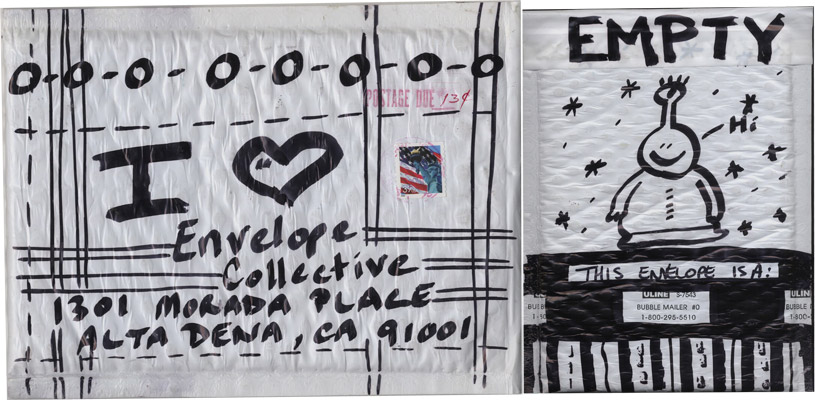 POSTAGE DUE 13¢
I
Envelope
Collective
1301 MORADA PLACE
ALTA DENA, CA 91001
EMPTY
Hi
THIS ENELOPE IS A:
ULINE S-7643
BUBBLE MAILER #0
1-800-295-5510
ULIN
BUBB
1-80